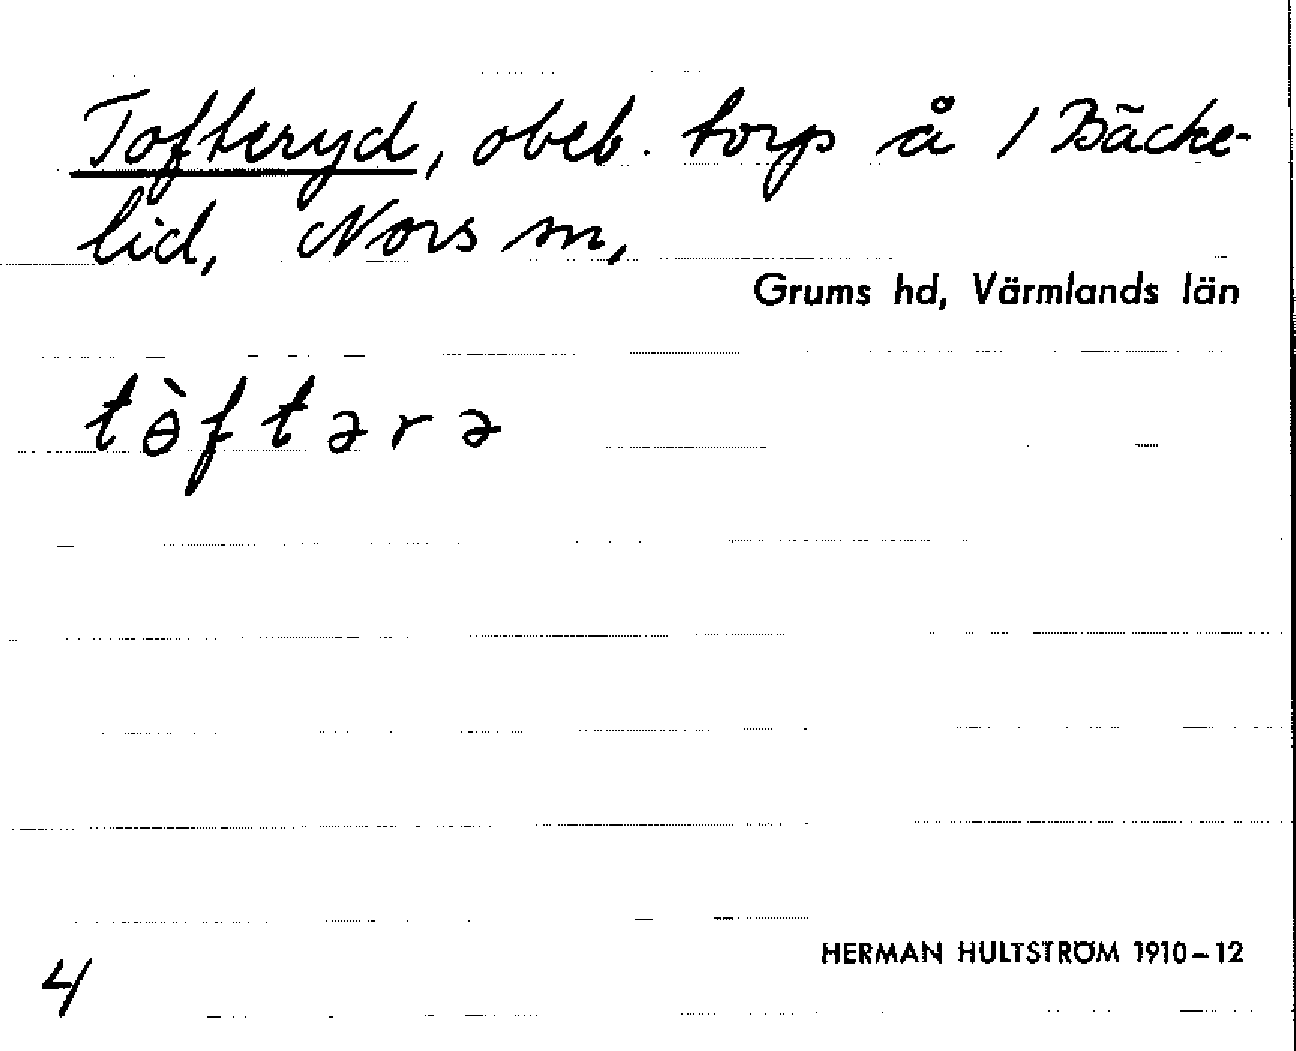 Tofteryd, obeb. torp å 1 Bäcke-
lid, Nors sn,
Grums hd, Värmlands län
tɵ̀ftərə
HERMAN HULTSTRÖM 1910–12
4